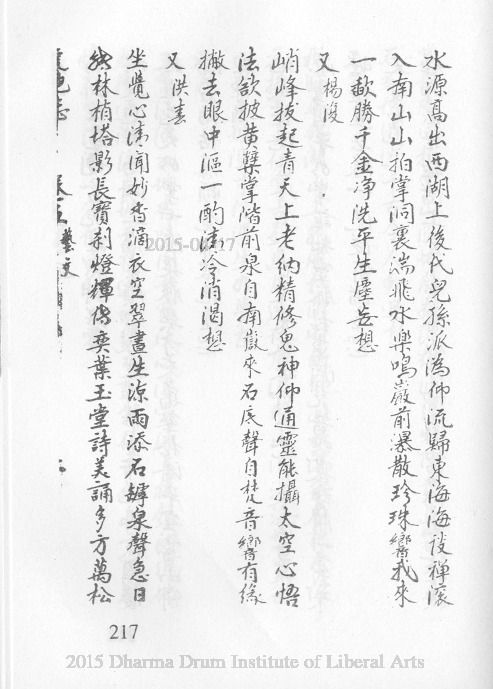 水源高出西湖上後代兒孫派為仰流歸東海海設禪瀼
入南山山拍掌洞裏湍飛水樂鳴巖前瀑散珍珠響我來
一歃勝千金净洗平生塵妄想
又 楊復
峭峰拔起青天上老衲精修鬼神仰通靈能攝太空心悟
法欲披黄蘗掌階前泉自南嶽來石底聲自梵音響有緣
撇去眼中漚一酌清冷消渴想
又 洪春
坐覺心清聞妙香滴衣空翠晝生涼雨添石罅泉聲急日
林梢塔影長寶刹燈輝傳奕葉玉堂詩美誦多方萬松
藝文
2015-06-17
217
2015 Dharma Drum Institute of Liberal Arts